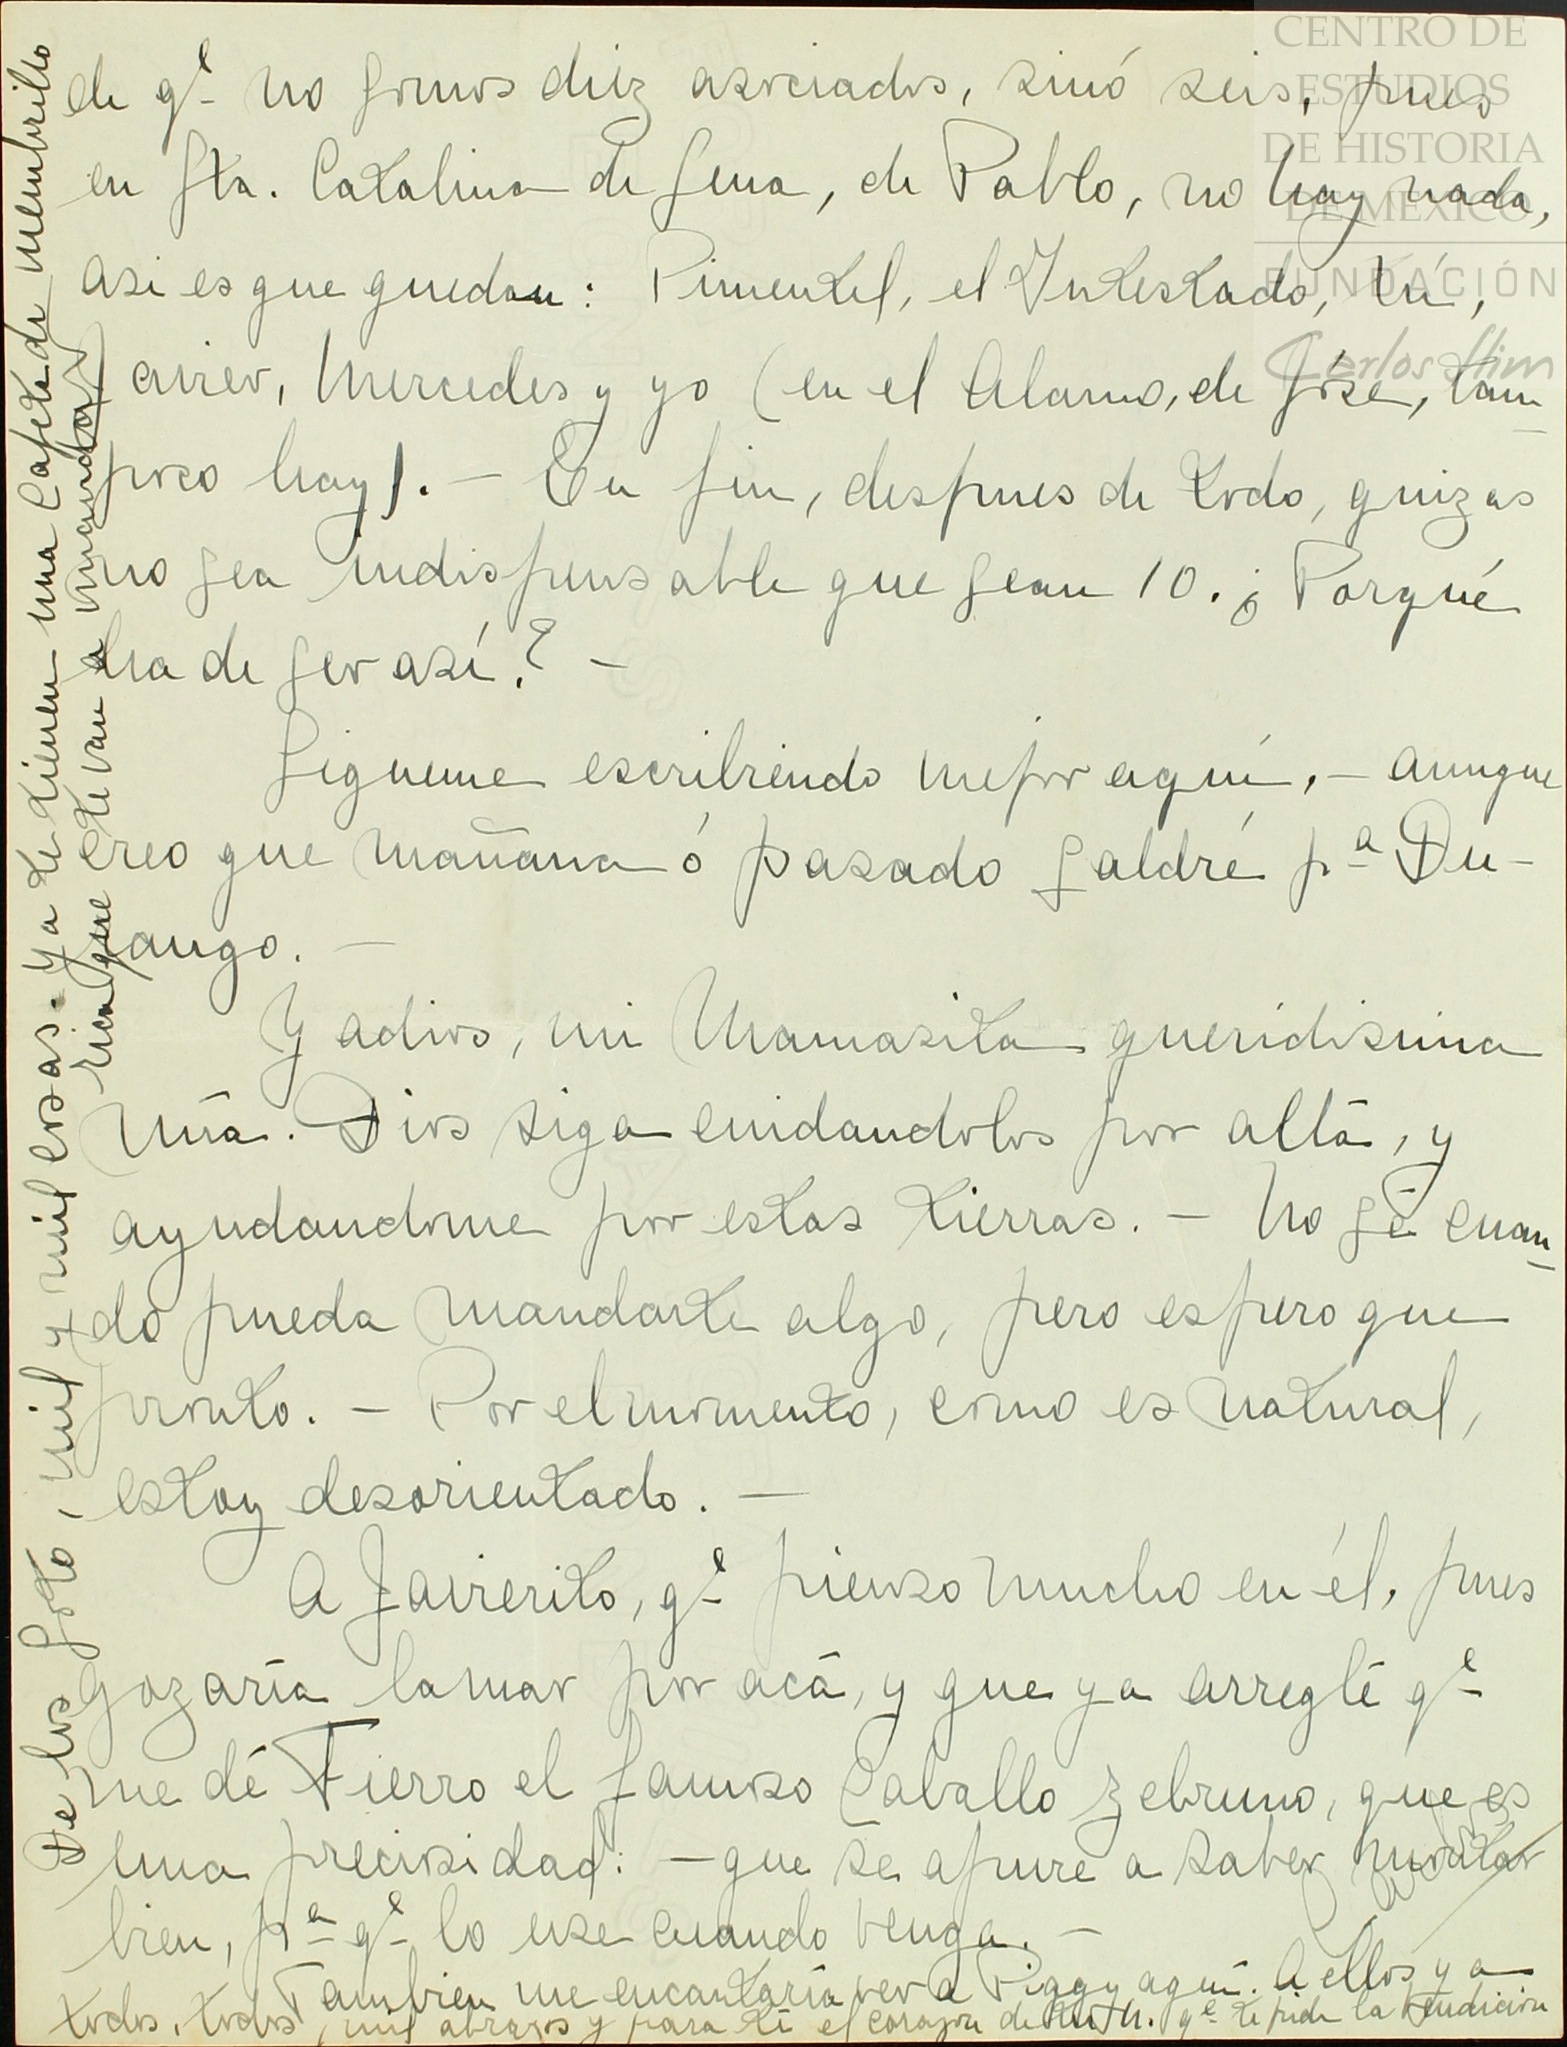 de qe no somos diez asociados, sinó seis, pues
en Sta. Catalina de Sena, de Pablo, no hay nada,
asi es que quedan: Pimentel, el Intestado, tú,
Javier, Mercedes y yo (en el Alamo, de José, tam-
poco hay). — En fin, despues de todo, quizas
no sea indispensable que sean 10. ¿Porqué
ha de ser asi? —
Sigueme escribiendo mejor aquí, — aunque
creo que mañana ó pasado saldré pa Du-
rango. —
Y adios, mi Mamasita queridisima
mía. Dios siga cuidandolos por allá, y
ayudandome por estas tierras. — No sé cuan-
do pueda mandarte algo, pero espero que
pronto. — Por el momento, como es natural,
estoy desorientado. —
A Javierito, qe pienso mucho en él, pues
gozaría la mar por acá, y que ya arreglé qe
me dé Fierro el famoso Caballo zebruno, que es
una preciosidad: — que se apure a saber montar
bien, pa qe lo use cuando venga. —
Tambien me encantaría ver a Piggy aquí. A ellos y a
todos, todos, mil abrazos y para tí el corazon de tu qe te pide la bendicion
De los Soto, mil y mil cosas. Ya te tienen una Cajeta de membrillo
rica que te van a mandar
CENTRO DE
ESTUDIOS
DE HISTORIA
DE MÉXICO
FUNDACIÓN
Carlos Slim